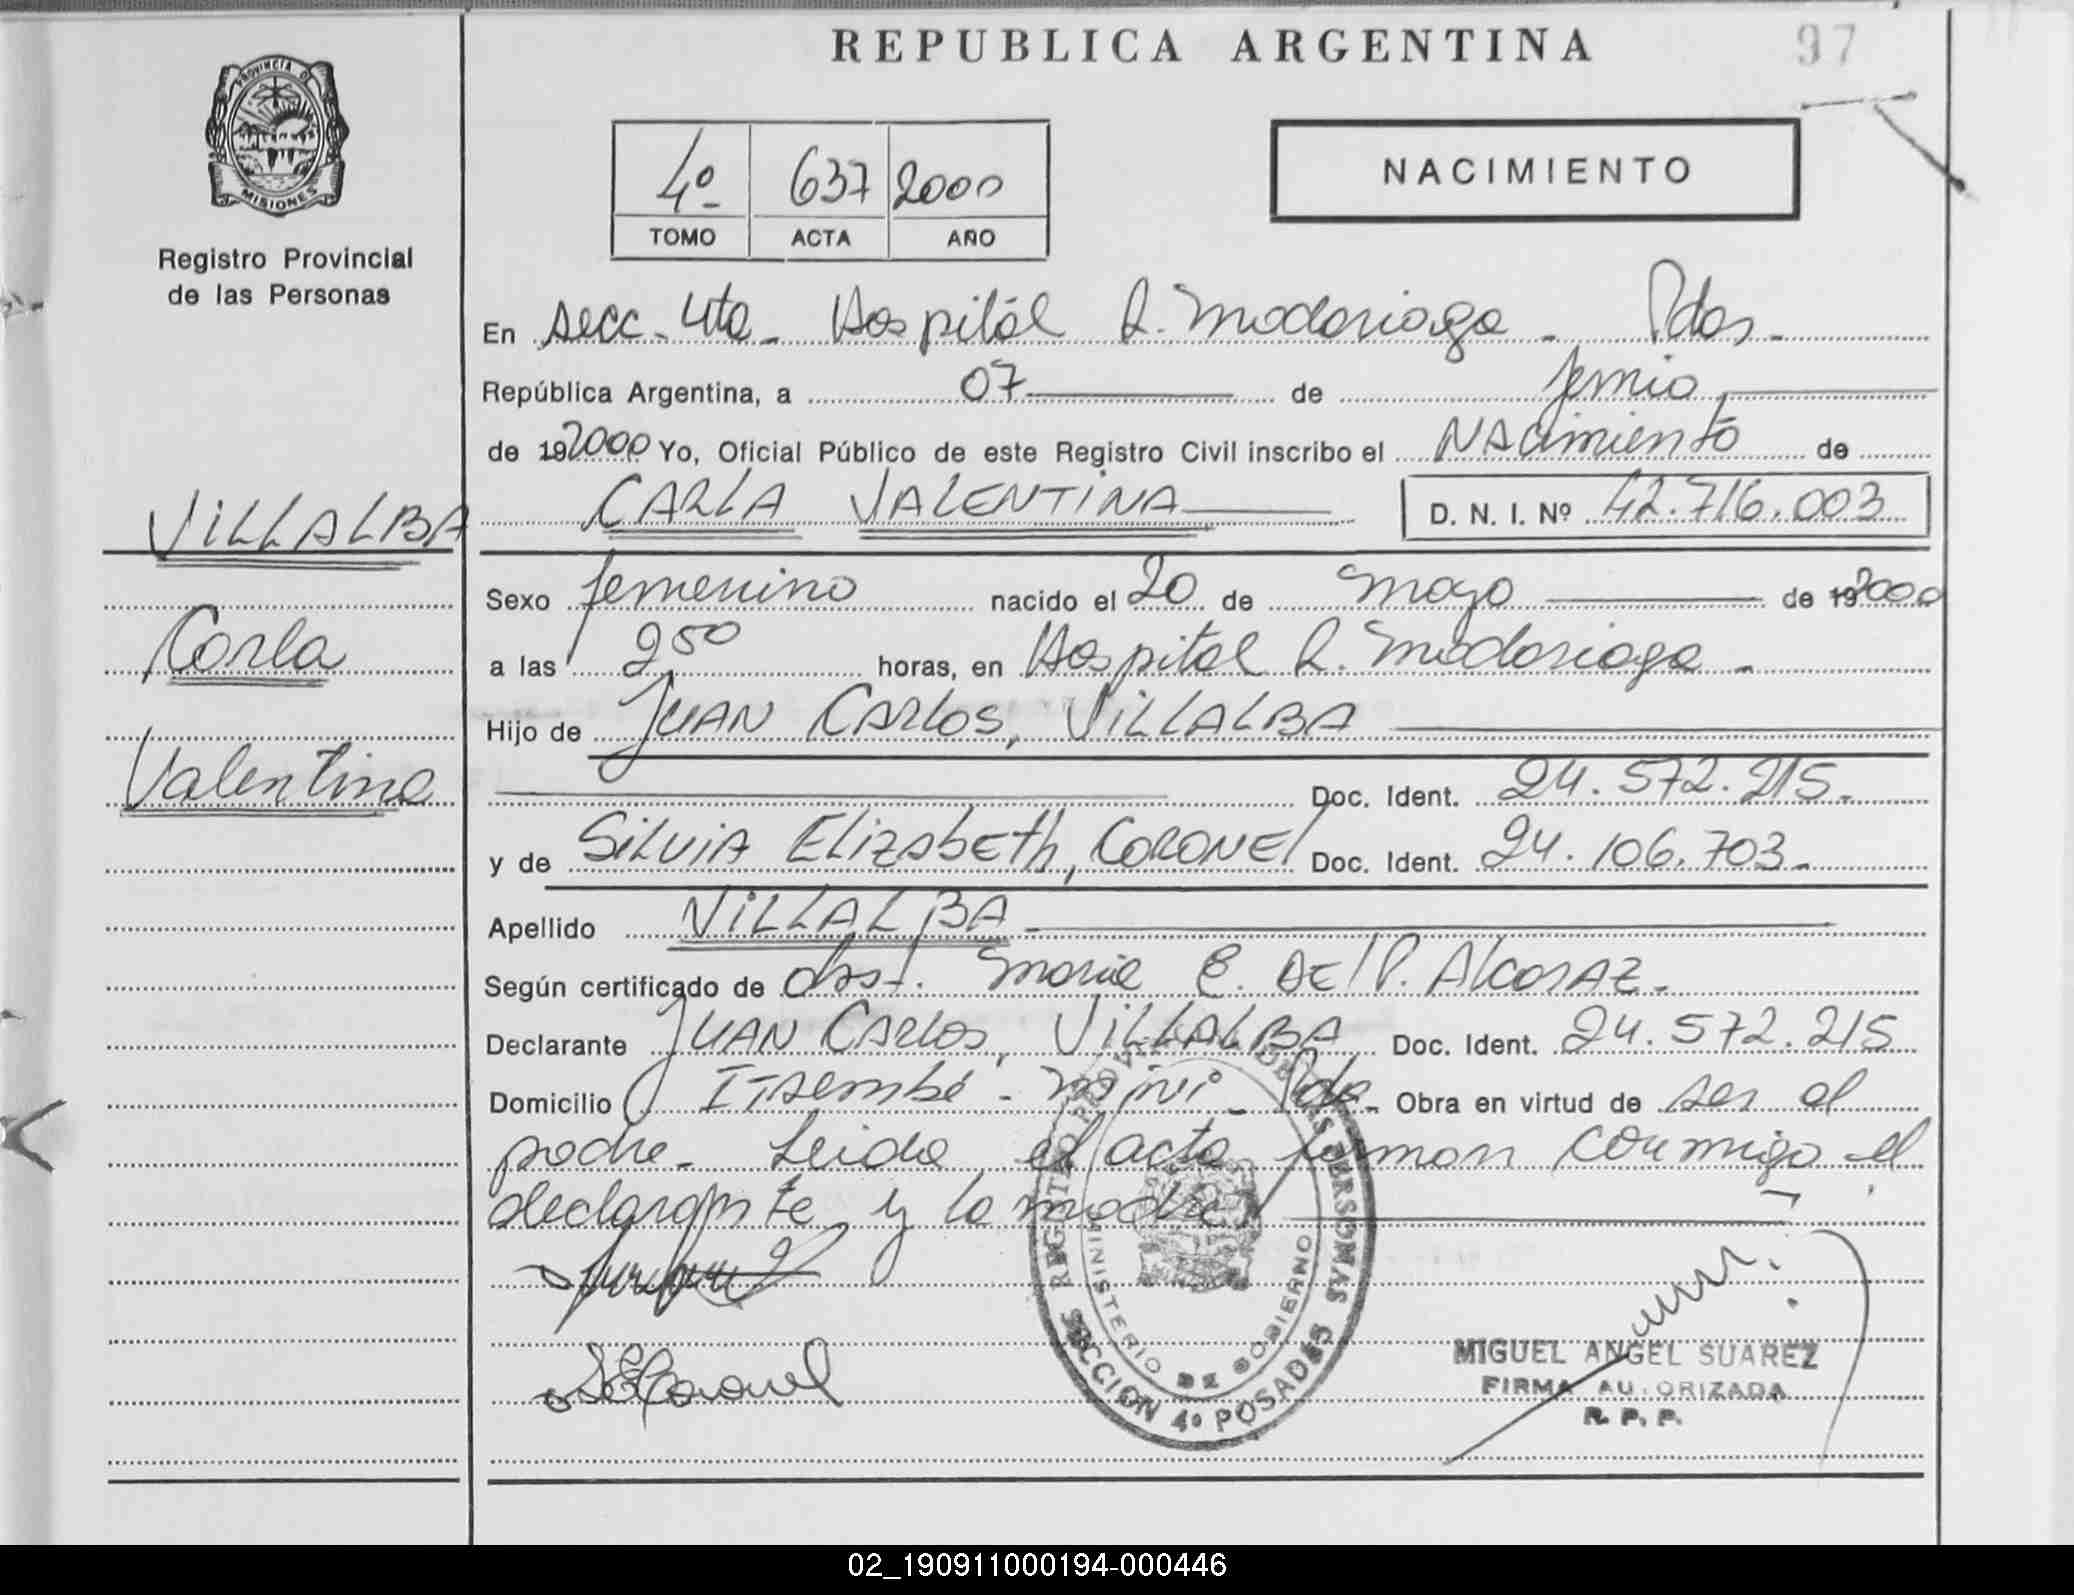 REPUBLICA ARGENTINA
97
PROVINCIA D
MISIONES
Registro Provincial
de las Personas
4º 637 2000
TOMO ACTA AÑO
NACIMIENTO
En secc. 4ta - Hospital R. Madariaga - Pdas -
República Argentina, a 07 de junio
de 192000 Yo, Oficial Público de este Registro Civil inscribo el Nacimiento de
CARLA VALENTINA D. N. I. Nº 42.716.003
VILLALBA
Carla
Valentina
Sexo femenino nacido el 20 de mayo de 192000
a las 250 horas, en Hospital R. Madariaga -
Hijo de JUAN CARLOS, VILLALBA
Doc. Ident. 24.572.215 -
y de SILVIA ELIZABETH, CORONEL Doc. Ident. 24.106.703 -
Apellido VILLALBA
Según certificado de obst. Maria E. DEL P. AlcarAZ -
Declarante JUAN CARLOS, VILLALBA Doc. Ident. 24.572.215
Domicilio Itaembé - Mini - Pdas - Obra en virtud de ser el
padre - Leida el acta firman conmigo el
declarante y la madre
SECoronel
REGISTRO PROVINCIAL DE LAS PERSONAS
MINISTERIO DE GOBIERNO
SECCION 4º POSADAS
MIGUEL ANGEL SUAREZ
FIRMA AU.ORIZADA
R. P. P.
02_190911000194-000446